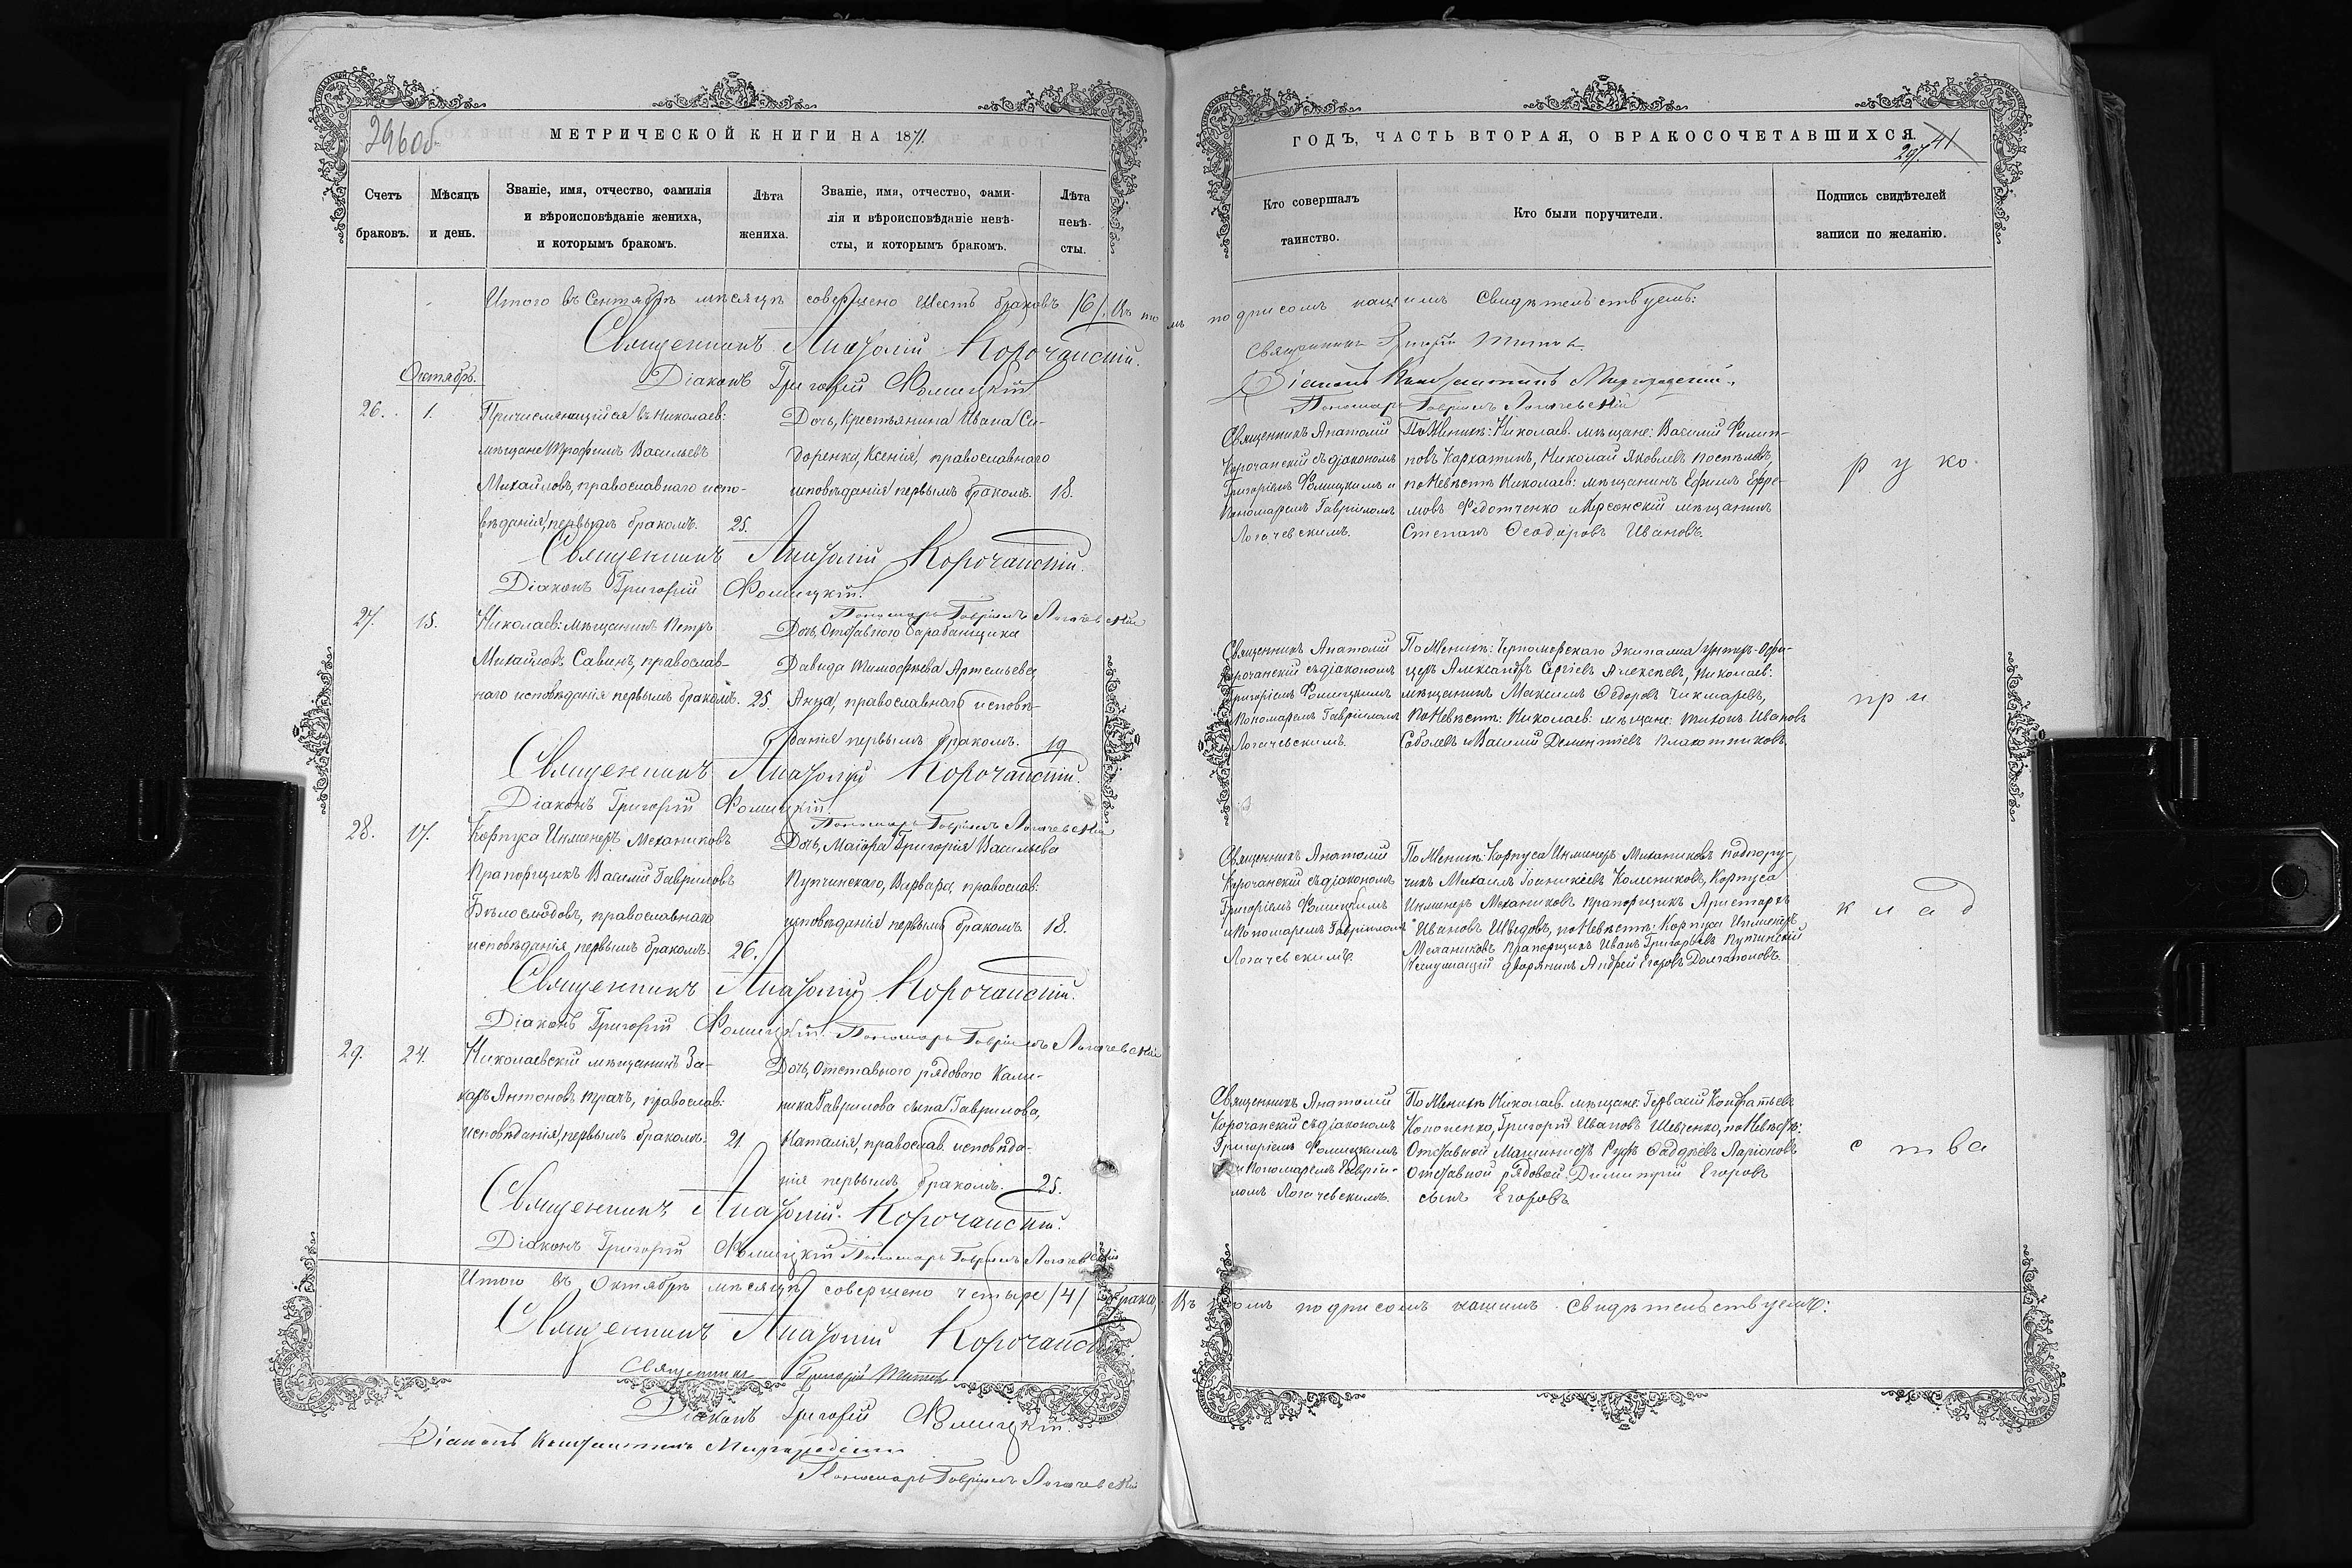 296 об
МЕТРИЧЕСКОЙ КНИГИ НА 1871.
Счетъ браковъ.
Мѣсяцъ и день.
Званіе, имя, отчество, фамилія
и вѣроисповѣданіе жениха,
и которымъ бракомъ.
Лѣта
жениха.
Званіе, имя, отчество, фами-
лія и вѣроисповѣданіе невѣ-
сты, и которымъ бракомъ.
Лѣта
невѣ-
сты.
Итого въ Сентябрѣ мѣсяцѣ совершено шесть браковъ /6/. Въ томъ
Священникъ Анатолій Корочанскій.
Октябрь.
Діаконъ Григорій Фомицкій.
26. 1.
Причисляющійся въ Николаев:
мѣщане Трофимъ Васильевъ
Михайловъ, православнаго испо-
вѣданія, первымъ бракомъ. 25.
Дочь, Крестьянина Ивана Си-
доренки, Ксенія, православнаго
исповѣданія первымъ бракомъ. 18.
Священникъ Анатолій Корочанскій.
Діаконъ Григорій Фомицкій.
Пономарь Гавріилъ Логачевскій
27. 15.
Николаев: мѣщанинъ Петръ
Михайловъ Савинъ, православ-
наго исповѣданія первымъ бракомъ. 25.
Дочь, Отставного барабанщика
Давида Тимофѣева Артемьева
Анна, православнаго исповѣ-
данія первымъ бракомъ. 19
Священникъ Анатолій Корочанскій.
Діаконъ Григорій Фомицкій
Пономарь Гавріилъ Логачевскій
28. 17.
Корпуса Инженеръ Механиковъ
Прапорщикъ Василій Гавриловъ
Бѣлослюдовъ, православнаго
исповѣданія первымъ бракомъ. 26.
Дочь, Маіора Григорія Васильева
Пупчинскаго, Варвара, православ:
исповѣданія первымъ бракомъ 18.
Священникъ Анатолій Корочанскій.
Діаконъ Григорій Фомицкій. Пономарь Гавріилъ Логачевскій
29. 24.
Николаевскій мѣщанинъ За-
харъ Антоновъ Ткачъ, православ:
исповѣданія, первымъ бракомъ. 21.
Дочь, Отставного рядового Кали-
ника Гаврилова сына Гаврилова,
Наталія, православ. исповѣда-
нія первымъ бракомъ. 25.
Священникъ Анатолій Корочанскій.
Діаконъ Григорій Фомицкій Пономарь Гавріилъ Логачевскій
Итого въ Октябрѣ мѣсяцѣ совершено четыре /4/ брака, Въ
Священникъ Анатолій Корочанскій.
Священникъ Григорій
Діаконъ Григорій Фомицкій.
Діаконъ Константинъ Миргородскій
Пономарь Гавріилъ Логачевскій
ГОДЪ, ЧАСТЬ ВТОРАЯ, О БРАКОСОЧЕТАВШИХСЯ.
41
297.
Кто совершалъ
таинство.
Кто были поручители.
Подпись свидѣтелей
записи по желанію.
подписомъ нашимъ Свидѣтельствуемъ:
Священникъ Григорій
Діаконъ Константинъ Миргородскій.
Пономарь Гавріилъ Логачевскій
Священникъ Анатолій
Корочанскій съ діакономъ
Григоріемъ Фомицкимъ и
Пономаремъ Гавріиломъ
Логачевскимъ.
По Женихѣ: Николаев. мѣщане: Василій Филип-
повъ Кархатинъ, Николай Яковлевъ Поспѣловъ,
по Невѣстѣ Николаев: мѣщанинъ Ефимъ Ефре-
мовъ Федотченко и Херсонскій мѣщанинъ
Степанъ Феодоровъ Ивановъ.
руко-
Священникъ Анатолій
Корочанскій съ діакономъ
Григоріемъ Фомицкимъ
Пономаремъ Гавріиломъ
Логачевскимъ.
По Женихѣ: Черноморскаго Экипажа Унтеръ-Офи-
церъ Александръ Сергѣевъ Алексѣевъ, Николаев:
мѣщанинъ Максимъ Федоровъ Чикмаревъ,
По Невѣстѣ: Николаев: мѣщане: Тихонъ Ивановъ
Соболевъ и Василій Дементіевъ Плахотниковъ.
при
Священникъ Анатолій
Корочанскій съ діакономъ
Григоріемъ Фомицкимъ
и Пономаремъ Гавріиломъ
Логачевскимъ.
По Женихѣ: Корпуса Инженеръ Механиковъ подпору-
чикъ Михаилъ Іоаникіевъ Колесниковъ, Корпуса
Инженеръ Механиковъ прапорщикъ Аристархъ
Ивановъ Шведовъ, по Невѣстѣ: Корпуса Инженеръ
Механиковъ Прапорщикъ Иванъ Григорьевъ Пупчинскій
Неслужащій дворянинъ Андрей Егоровъ Долгополовъ.
клад
Священникъ Анатолій
Корочанскій съ діакономъ
Григоріемъ Фомицкимъ
и Пономаремъ Гаврій-
ломъ Логачевскимъ.
По Женихѣ Николаев. мѣщане: Гервасій Кондратьевъ
Кононенко, Григорій Ивановъ Шевченко, по Невѣстѣ:
Отставной Машинистъ Руфъ Фаддѣевъ Ларіоновъ
Отставной рядовой Димитрій Егоровъ
сынъ Егоровъ
ства
томъ подписомъ нашимъ Свидѣтельствуемъ: